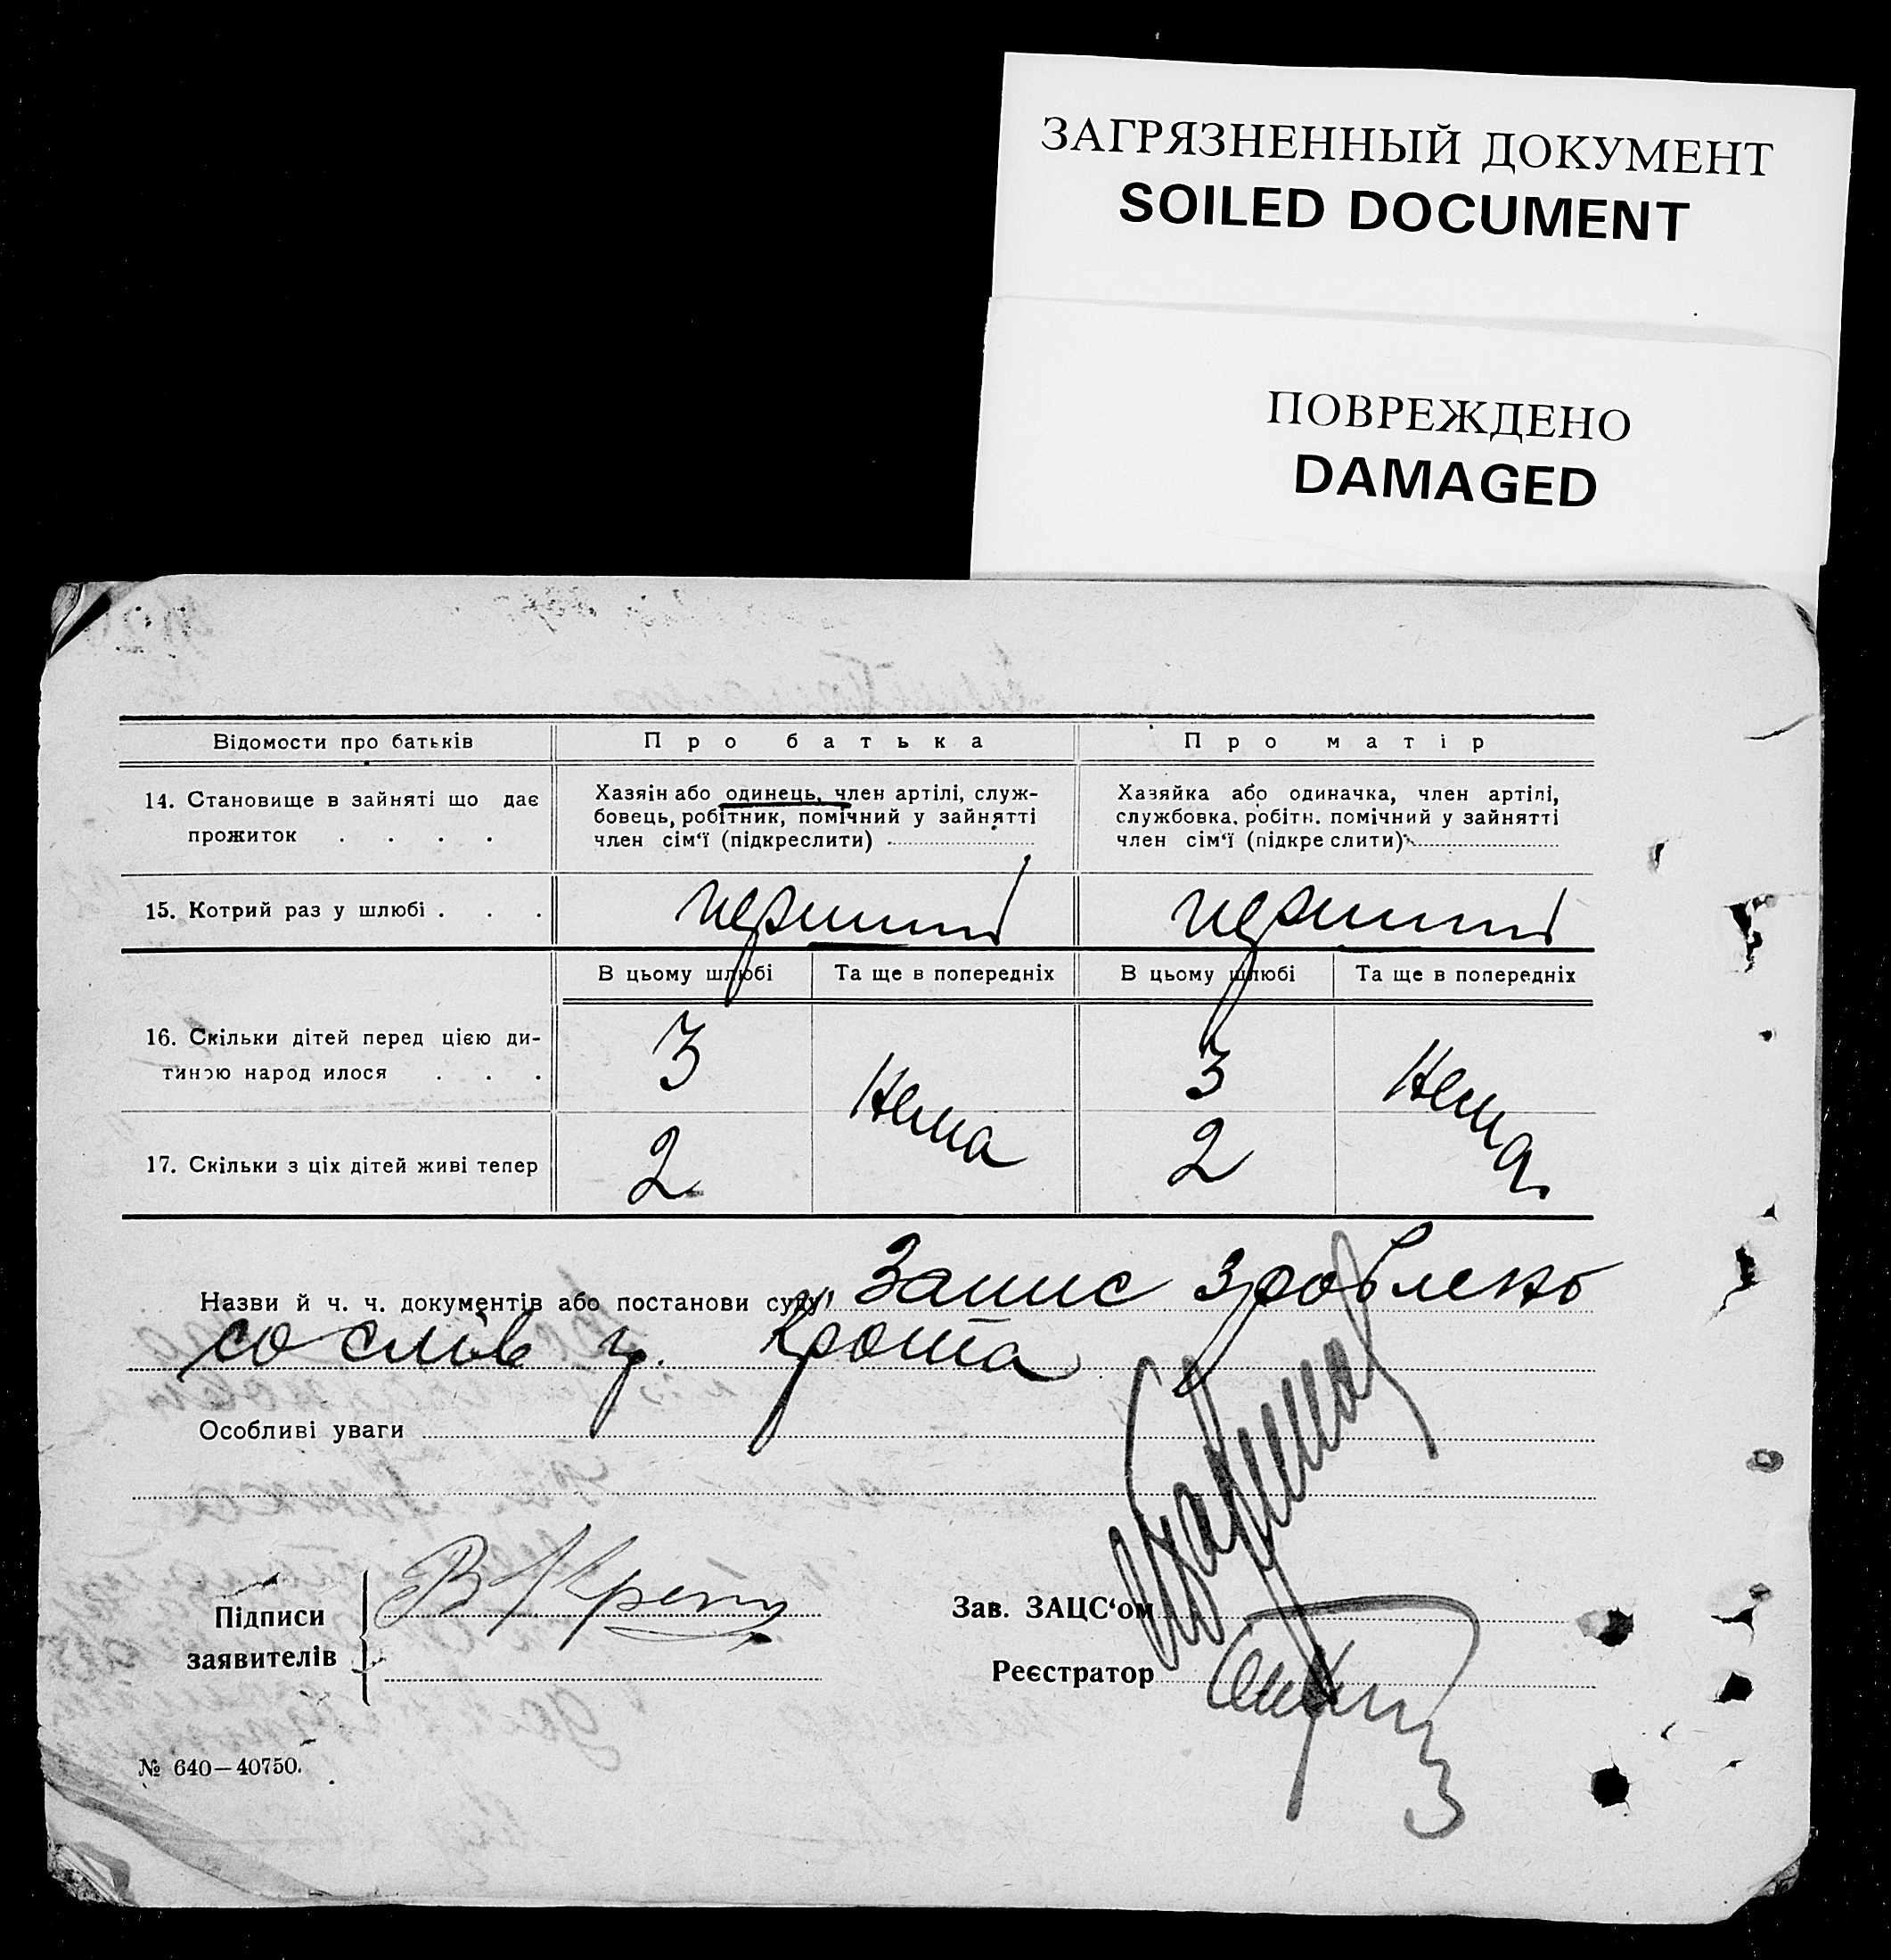 ЗАГРЯЗНЕННЫЙ ДОКУМЕНТ
SOILED DOCUMENT
ПОВРЕЖДЕНО
DAMAGED
Відомости про батьків
Про батька
Про матір
14. Становище в зайняті що дає
прожиток . . . .
Хазяін або одинець, член артілі, служ-
бовець, робітник, помічний у зайнятті
член сім‘ї (підкреслити)
Хазяйка або одиначка, член артілі,
службовка. робітн. помічний у зайнятті
член сім‘ї (підкре слити)
15. Котрий раз у шлюбі . . .
перший
перший
В цьому шлюбі
Та ще в попередніх
В цьому шлюбі
Та ще в попередніх
16. Скільки дітей перед цією ди-
тиною народ илося . . .
3
Нема
3
Нема
17. Скільки з ціх дітей живі тепер
2
2
Назви й ч. ч. документів або постанови суду Запис зроблено
со слів гр.
Особливі уваги
Підписи
заявителів
Зав. ЗАЦС‘ом
Реєстратор
№ 640—40750.